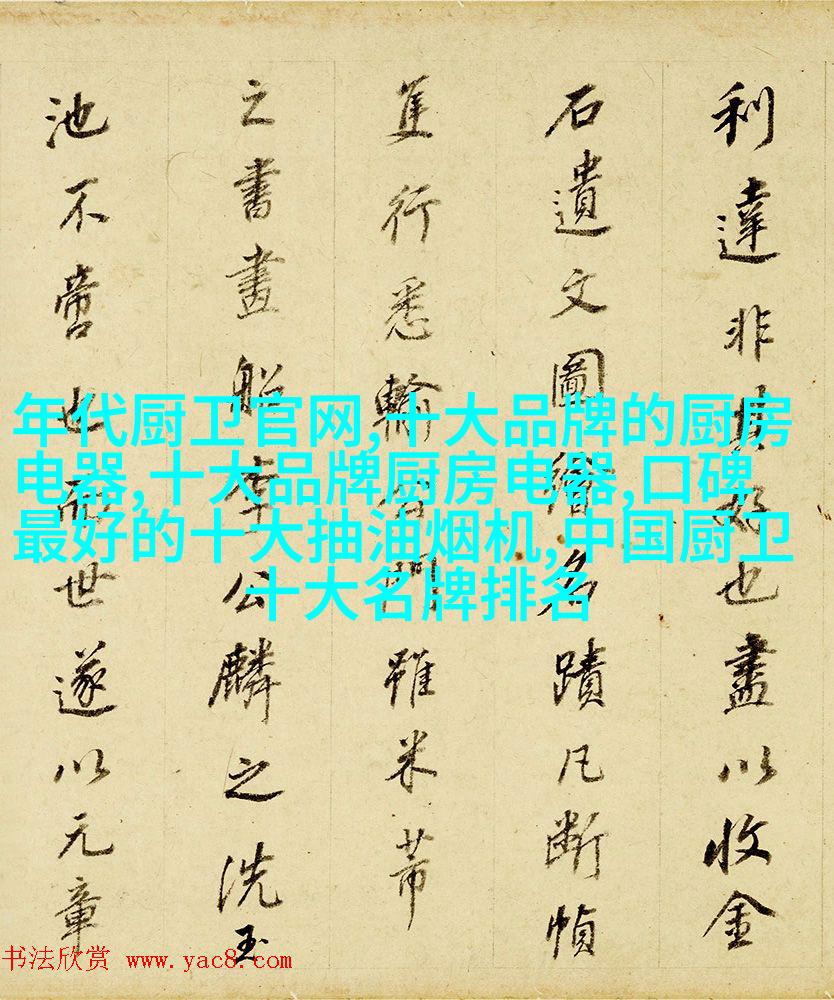 利達非其好也盡以收金
石遺文圖繪名蹟凡斷幀
隻行悉輸門雖米芾
之書畫船李公麟之洗玉
池不啻也而世遂以元章
年代厨卫官网,十大品牌的厨房
电器,十大品牌厨房电器,口碑
最好的十大抽油烟机,中国厨卫
十大名牌排名
书法欣赏 www.yac8.com